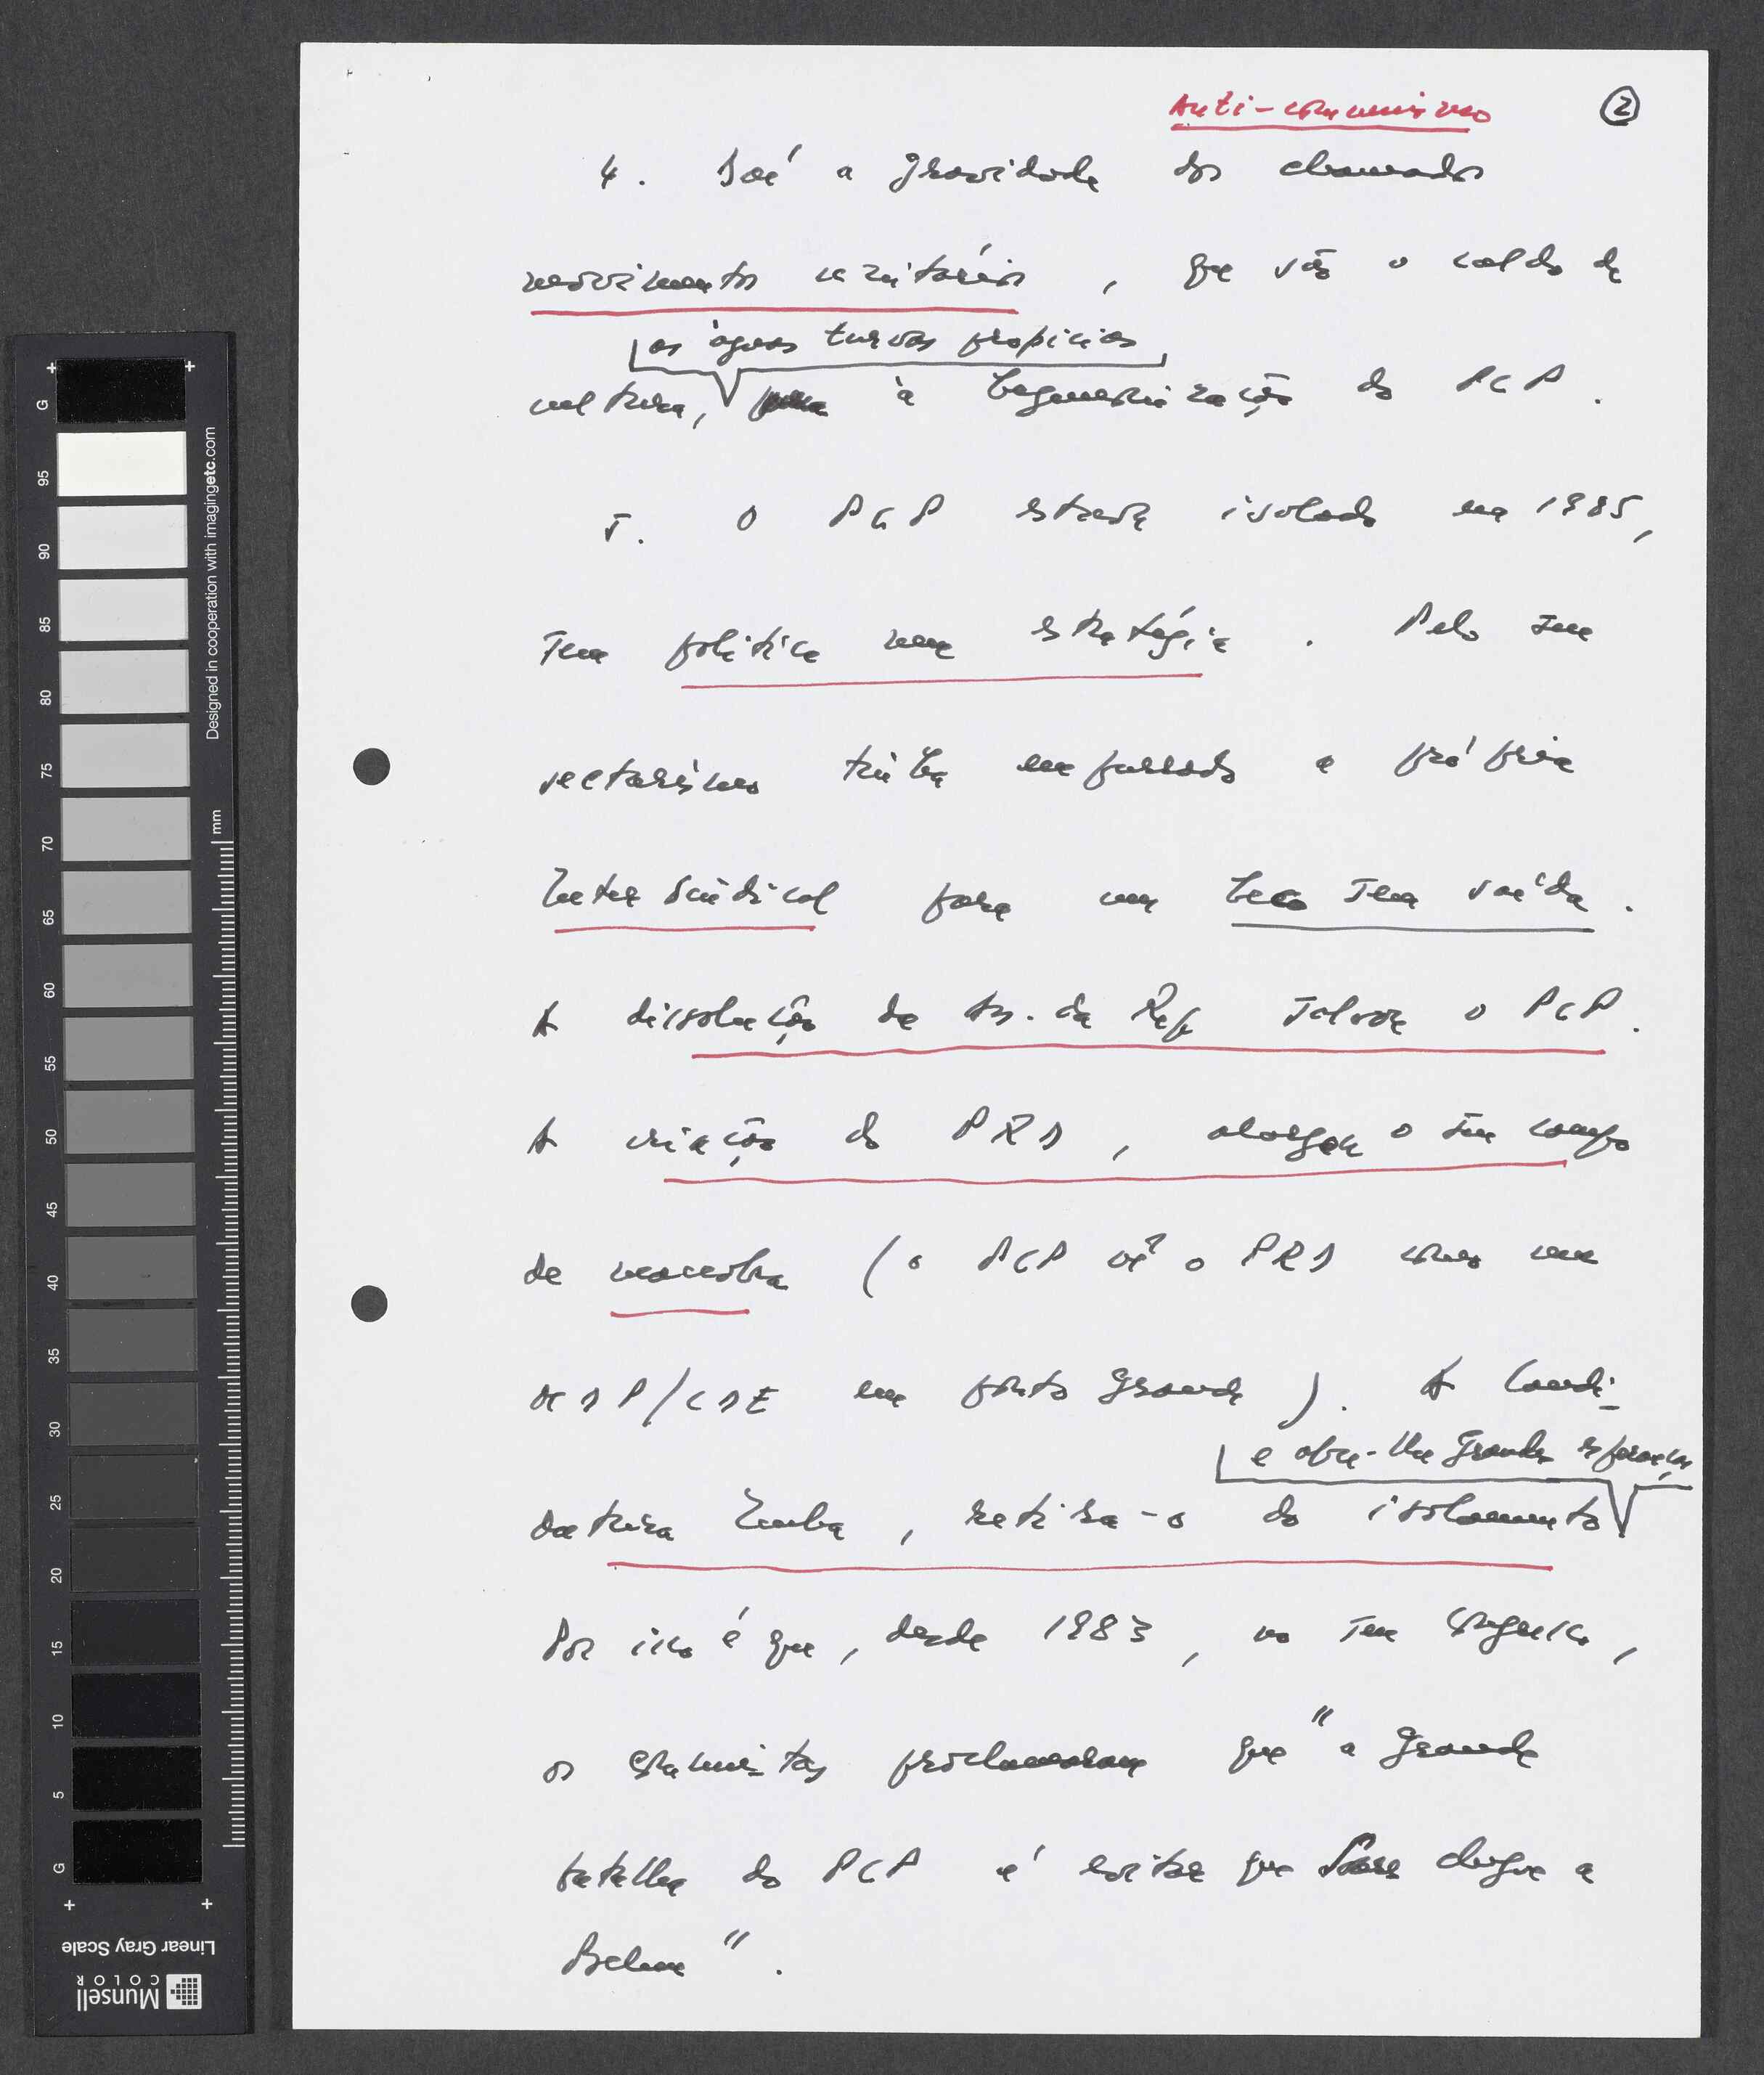 Anti-comunismo
2
4. Daí a gravidade dos chamados
movimentos unitários, que são o caldo de
as águas turvas propícias
cultura, à hegemonização do PCP.
5. O PCP estava isolado em 1985,
sem política nem estratégia. Pelo seu
sectarismo tinha empurrado a própria
Inter Sindical para um beco sem saída.
A dissolução da As. da Rep salvou o PCP.
A criação do PRD, alargou o seu campo
de manobra (o PCP vê o PRD como um
MDP/CDE em ponto grande). A Candi-
e abre-lhe grandes esperanças
datura Zenha, retira-o do isolamento
Por isso é que, desde 1983, no seu congresso,
os comunistas proclamaram que "a grande
batalha do PCP é evitar que Soares chegue a
Belém".
Designed in cooperation with imagingetc.com
mm
G
95
90
85
80
75
70
65
60
55
50
45
40
35
30
25
20
15
10
5
G
Linear Gray Scale
Munsell
COLOR